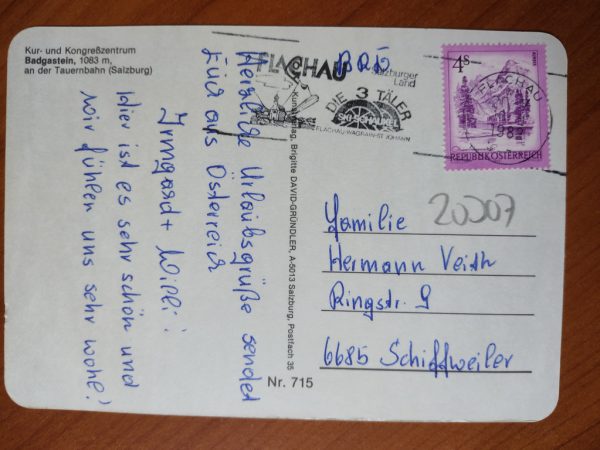 Kur- und Kongreßzentrum
Badgastein, 1083 m,
an der Tauernbahn (Salzburg)
Herzliche Urlaubsgrüße sendet
Euch aus Österreich
Irmgard + Willi!
Hier ist es sehr schön und
wir fühlen uns sehr wohl!
Brigitte DAVID-GRÜNDLER, A-5013 Salzburg, Postfach 35
Nr. 715
FLACHAU
Salzburger
Land
DIE 3 TÄLER
SKISCHAUKEL
FLACHAU-WAGRAIN-ST. JOHANN
BRD
4S
FLACHAU
REPUBLIK ÖSTERREICH
20007
Familie
Hermann Veith
Ringstr. 9
6685 Schiffweiler